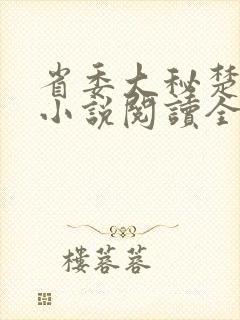 省委大秘楚
小說閱讀全
樓蓉蓉